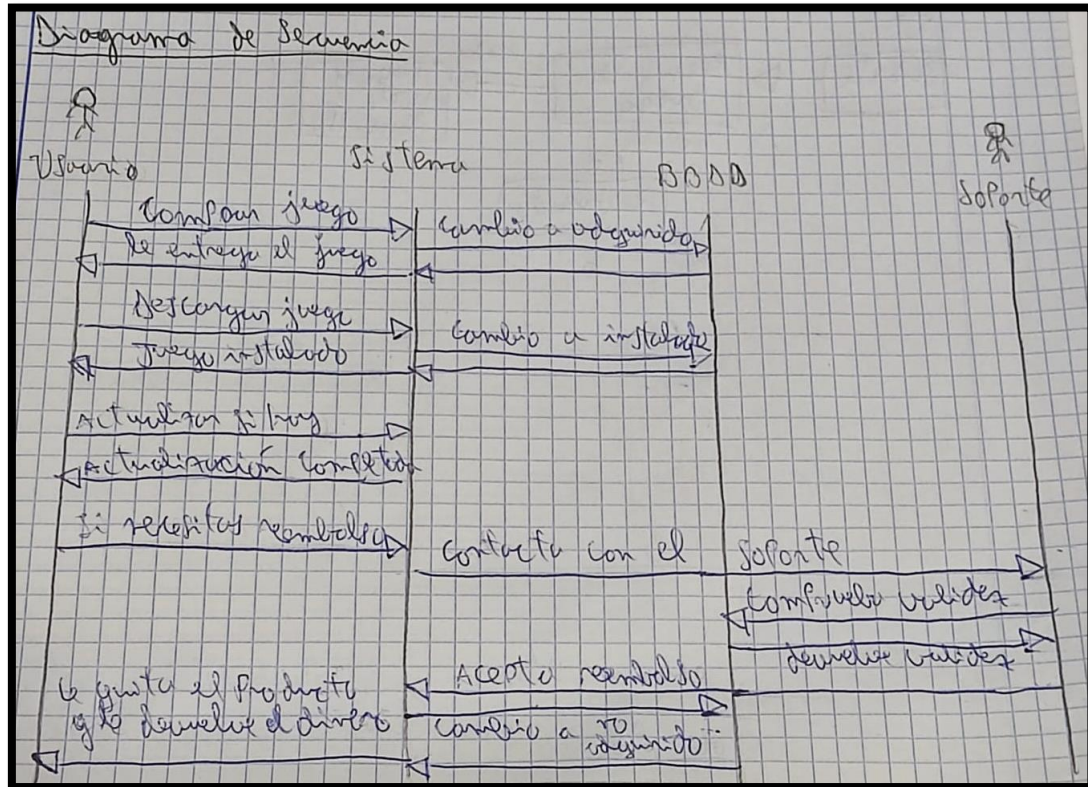 Diagrama de Secuencia
Usuario
Sistema
BDDD
Soporte
Compar juego
Cambio a adquirido
Se entrega el juego
Descargar juego
Cambio a instalado
Juego instalado
Actualizar si hay
Actualización Completada
Si necesitas reembolso
Contacta con el soporte
Comprueba validez
devuelve validez
Acepta reembolso
le quita el producto
y le devuelve el dinero
Cambio a no
adquirido